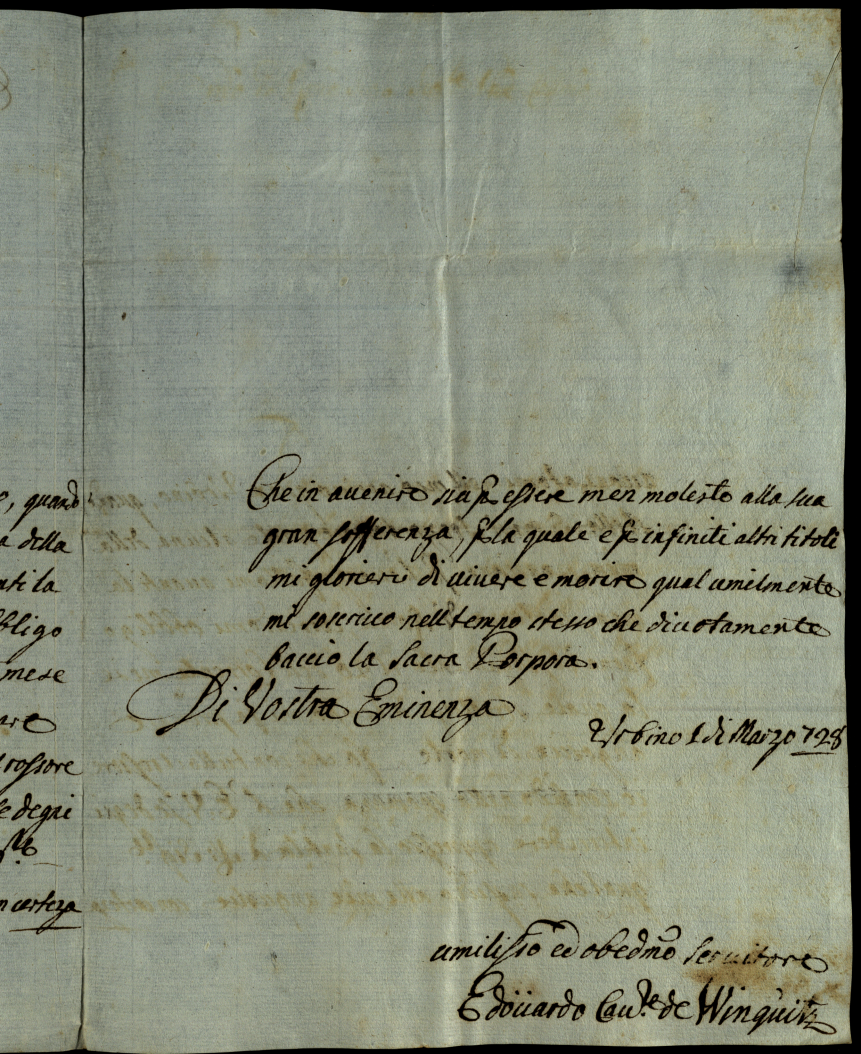 e, quand
a della
nti la
bbligo
mese
are
rossore
e degni
n certeza
Che in auenire sia p essere men molesto alla sua
gran sofferenza, p la quale e p infiniti altri titoli
mi glorierò di uiuere e morire qual umilmente
mi soscriuo nell tempo stesso che diuotamente
baccio la Sacra Porpora.
Di Vostra Eminenza
Urbino 1 di Marzo 728
umilisso ed obedmo seruitore
Edouardo Cau.re de